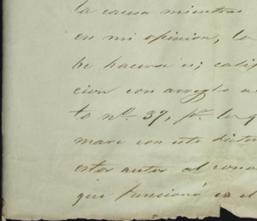 la causa mientras
en mi opinion, lo
be hacerse es; calif
cion con arreglo a
to nº 37, pr. lo q
mare con este dicta
estos autos al cono
que funcionó es el